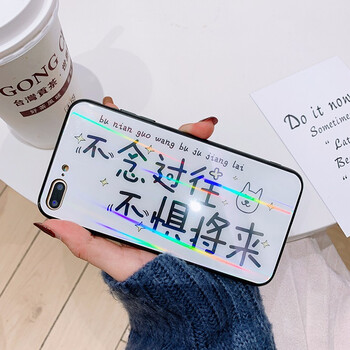 GONG C
台灣貢茶
bu nian guo wang bu ju jiang lai
不念过往
不惧将来
Do it now
Sometime
"Lat
Becom
"Ne